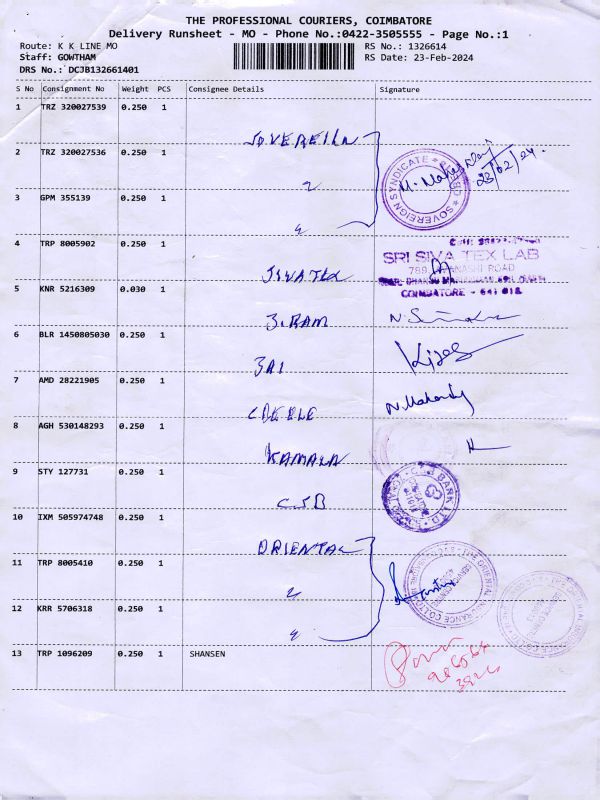 THE PROFESSIONAL COURIERS, COIMBATORE
Delivery Runsheet - MO - Phone No.:0422-3505555 - Page No.:1
Route: K K LINE MO RS No.: 1326614
Staff: GOWTHAM RS Date: 23-Feb-2024
DRS No.: DCJB132661401
S No Consignment No Weight PCS Consignee Details Signature
1 TRZ 320027539 0.250 1
SOVEREIGN
2 TRZ 320027536 0.250 1
23/02/24.
SOVEREIGN SYNDICATE
3 GPM 355139 0.250 1
4 TRP 8005902 0.250 1
SRI SIVA TEX LAB
SIVA TEX
COIMBATORE - 641 018
5 KNR 5216309 0.030 1
6 BLR 1450805030 0.250 1
7 AMD 28221905 0.250 1
8 AGH 530148293 0.250 1
KAMALA
9 STY 127731 0.250 1
CSB
10 IXM 505974748 0.250 1
ORIENTAL
11 TRP 8005410 0.250 1
12 KRR 5706318 0.250 1
13 TRP 1096209 0.250 1 SHANSEN